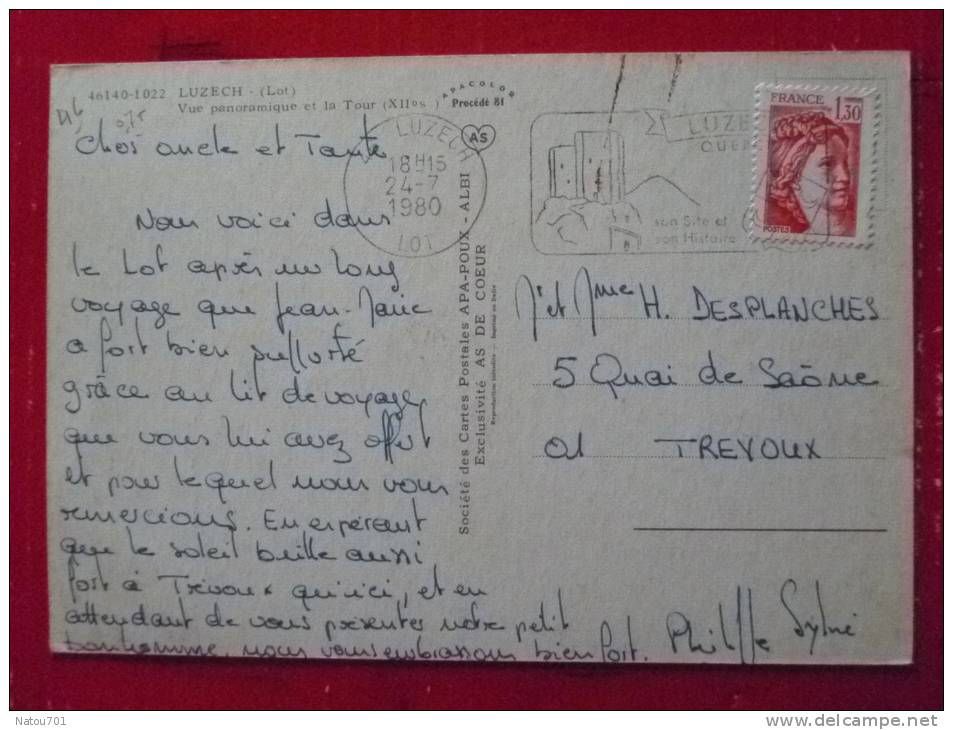 46140-1022 LUZECH - (Lot)
Vue panoramique et la Tour (XIIe s.)
APACOLOR
Procédé 81
AS
LUZECH
18H15
24-7
1980
LOT
LUZE
QUER
son Site et
son Histoire
FRANCE 1,30
POSTES
Chers oncle et Tante
Nous voici dans
le Lot après un long
voyage que Jean-Marie
a fort bien supporté
grâce au lit de voyage
que vous lui avez offert
et pour lequel nous vous
remercions. En espérant
que le soleil brille aussi
fort à Trévoux qu'ici, et en
attendant de vous présenter notre petit
bonhomme, nous vous embrassons bien fort. Philippe Sylvie
Société des Cartes Postales APA-POUX - ALBI
Exclusivité AS DE COEUR
Reproduction interdite - Imprimé en Italie
M et Mme H. DESPLANCHES
5 Quai de Saône
01 TREVOUX
Natou701
www.delcampe.net